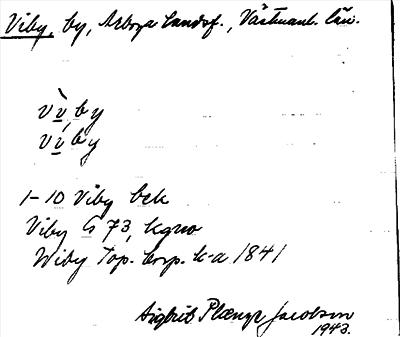 Viby, by, Arboga landsf., Västmanl. län.
vi̱by
vi̱by
1-10 Viby bek
Viby G 73, kgno
Wiby Top. corp. k-a 1841
Sigbrit Plænge Jacobson
1943.